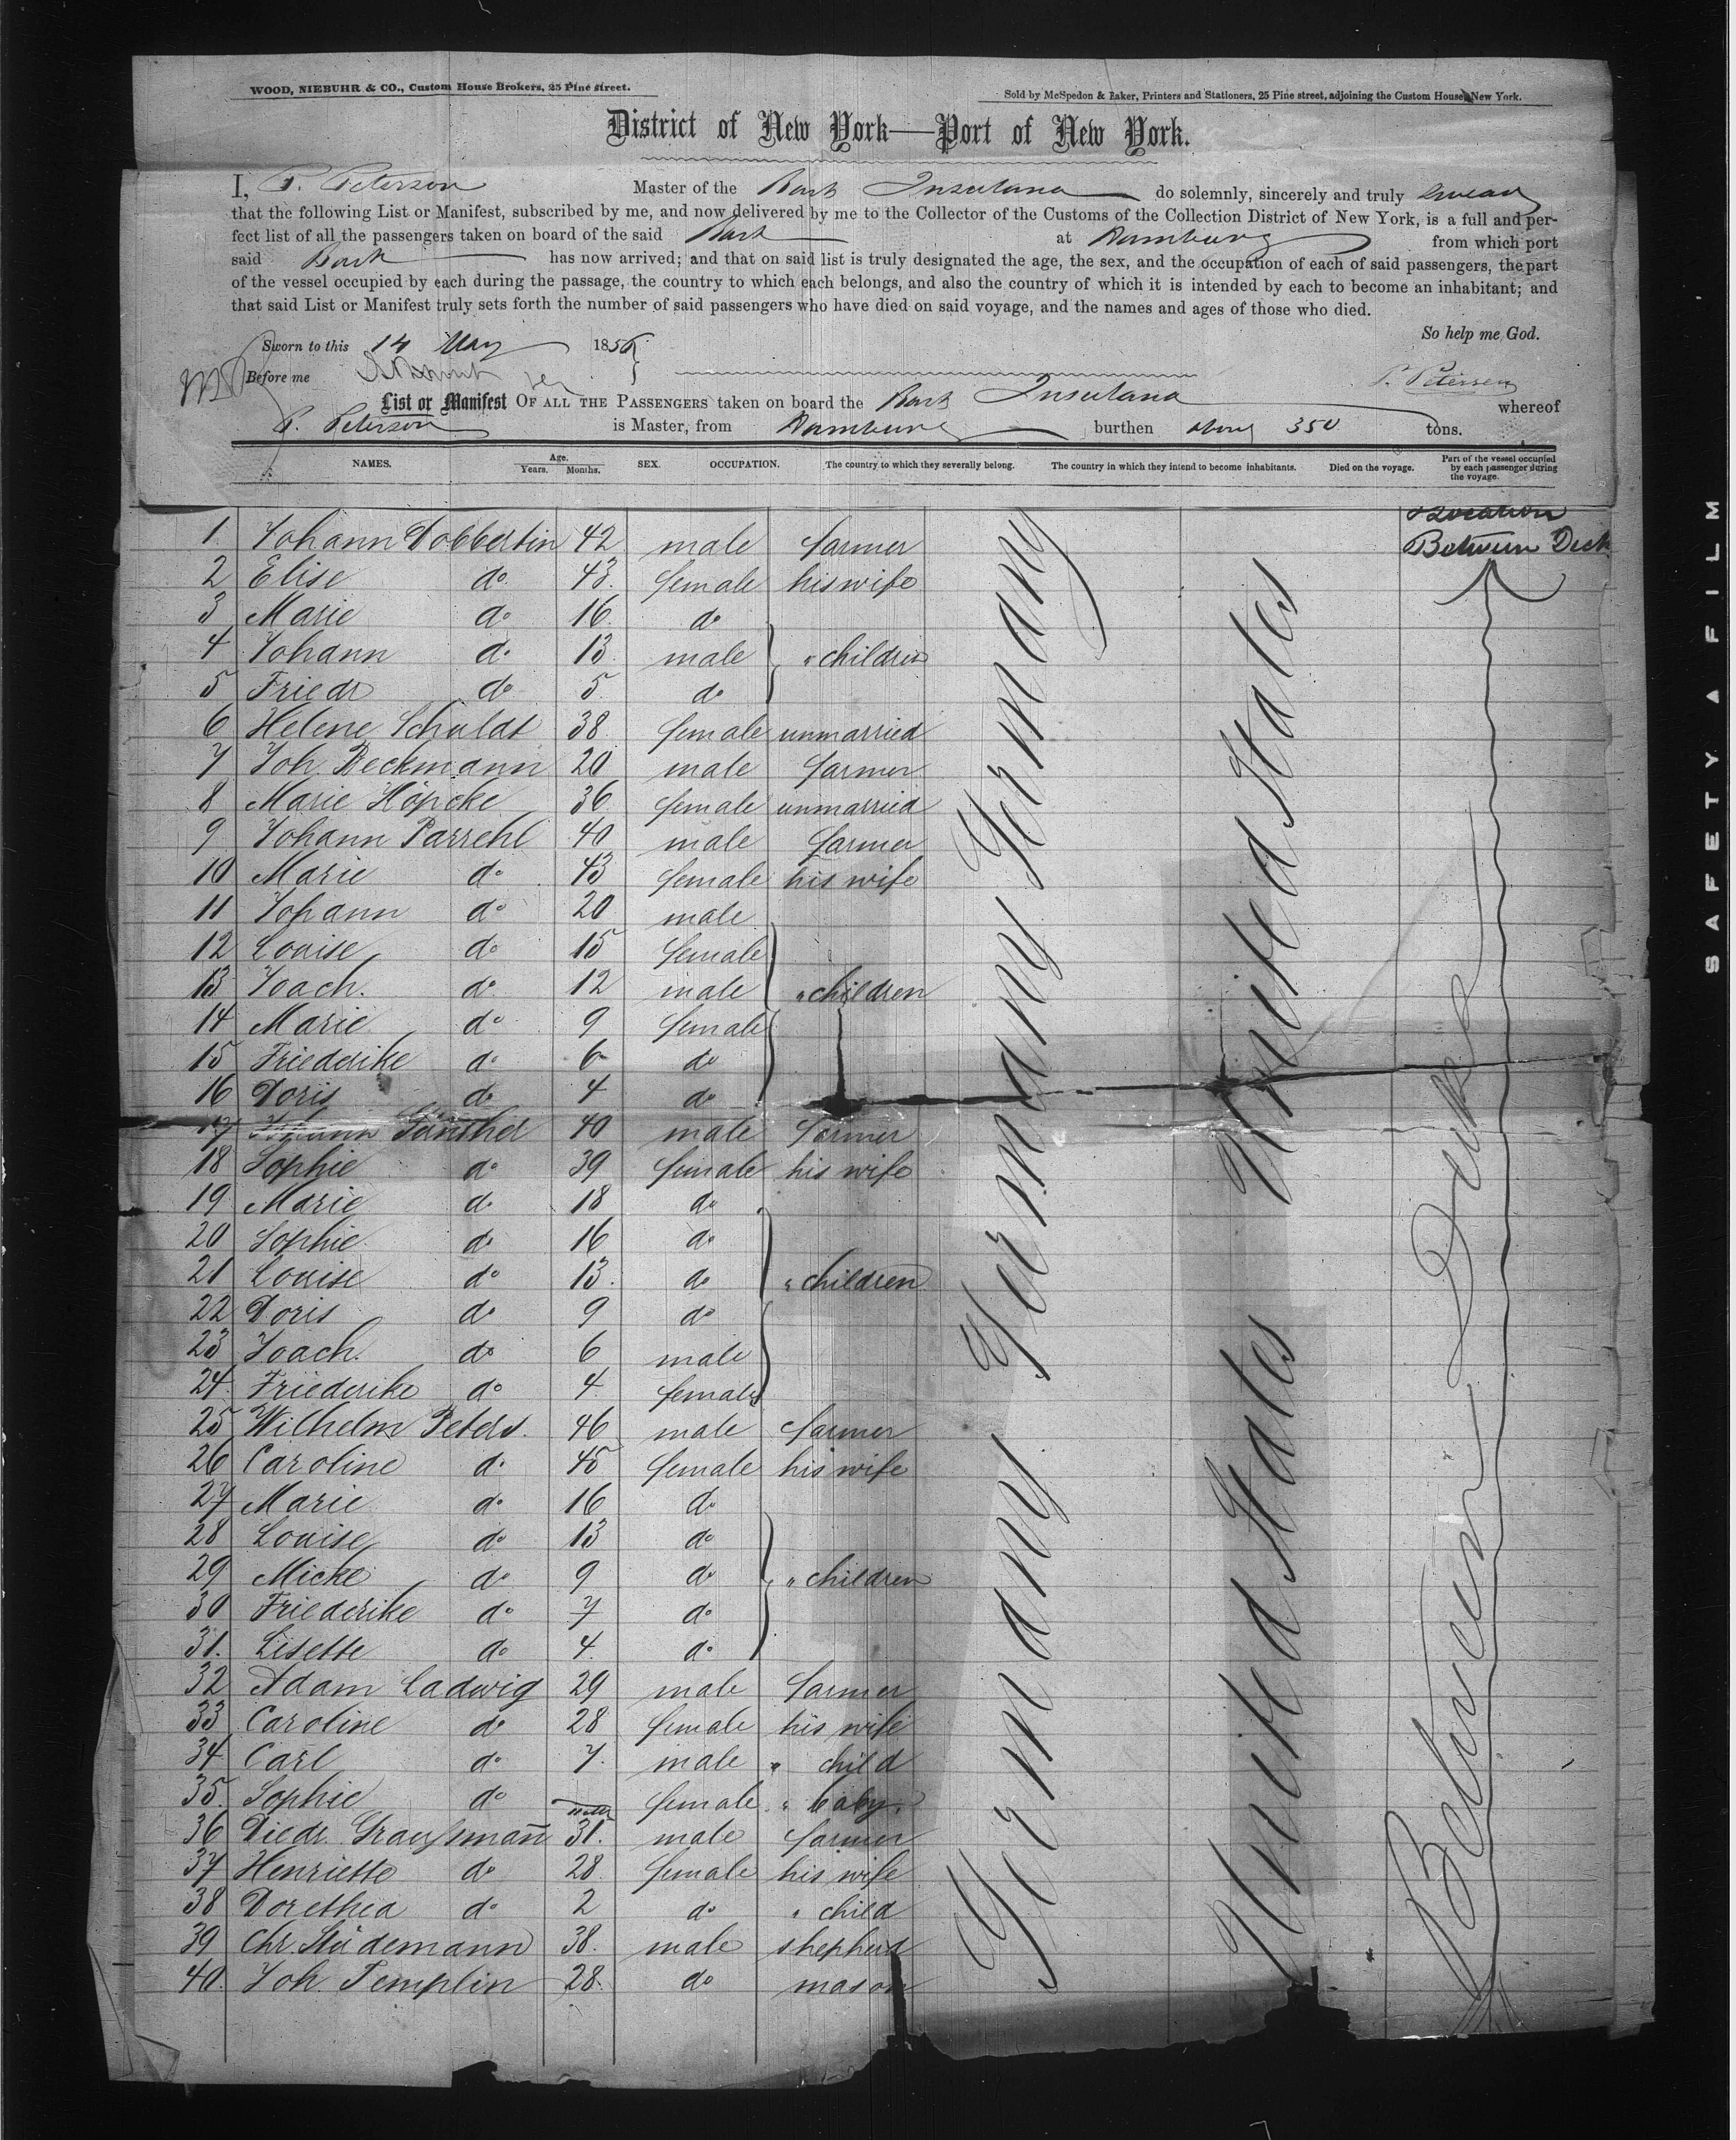 WOOD, NIEBUHR & CO., Custom House Brokers, 25 Pine street.
Sold by McSpedon & Baker, Printers and Stationers, 25 Pine street, adjoining the Custom House, New York.
District of New York—Port of New York.
I, P. Peterson Master of the Bark Insulana do solemnly, sincerely and truly swear
that the following List or Manifest, subscribed by me, and now delivered by me to the Collector of the Customs of the Collection District of New York, is a full and per-
fect list of all the passengers taken on board of the said Bark at Hamburg from which port
said Bark has now arrived; and that on said list is truly designated the age, the sex, and the occupation of each of said passengers, the part
of the vessel occupied by each during the passage, the country to which each belongs, and also the country of which it is intended by each to become an inhabitant; and
that said List or Manifest truly sets forth the number of said passengers who have died on said voyage, and the names and ages of those who died.
So help me God.
Sworn to this 14 May 1856
Before me
P. Petersen
List or Manifest OF ALL THE PASSENGERS taken on board the Bark Insulana whereof
P. Peterson is Master, from Hamburg burthen 350 tons.
NAMES. Age. Years. Months. SEX. OCCUPATION. The country to which they severally belong. The country in which they intend to become inhabitants. Died on the voyage. Part of the vessel occupied by each passenger during the voyage.
Location
Between Deck
1. Johann Dobbertin 42 male farmer
2 Elise do 43. female his wife
3 Marie do 16 do
4 Johann do 13 male " children
5 Friedr do 5 do
6 Helene Schuldt 38. female unmarried
7 Joh. Beckmann 20 male farmer
8 Marie Höpcke 36 female unmarried
9 Johann Parrehl 40 male farmer
10 Marie do 43 female his wife
11 Johann do 20 male
12 Louise do 15 female
13 Joach. do 12 male " children
14 Marie do 9 female
15 Friederike do 6 do
16 Doris do 4 do
17 Johann Günther 40 male farmer
18 Sophie do 39 female his wife
19 Marie do 18 do
20 Sophie do 16 do
21 Louise do 13. do " children
22 Doris do 9 do
23 Joach. do 6 male
24. Friederike do 4 female
25 Wilhelm Peters. 46 male farmer
26 Caroline do 45 female his wife
27 Marie do 16 do
28 Louise do 13 do
29 Micke do 9 do " children
30 Friederike do 7 do
31. Lisette do 4. do
32 Adam Ladwig 29 male farmer
33 Caroline do 28 female his wife
34 Carl do 7. male " child
35. Sophie do female " baby.
36 Diedr. Graussmann 31. male farmer
37 Henriette do 28 female his wife
38 Dorethea do 2 do " child
39 Chr. Stüdemann 38. male shepherd
40. Joh. Templin 28. do mason
Germany Germany Germany Germany
United States United States
Between Deck
SAFETY A FILM